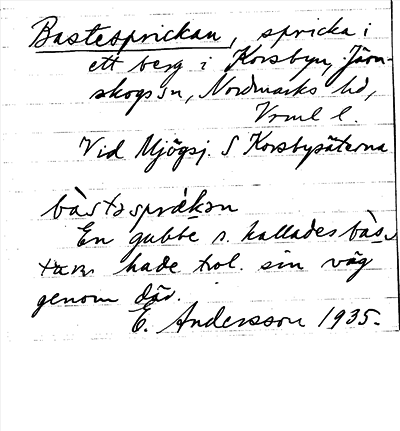 Bastesprickan, spricka i
ett berg i Korsbyn, Järn-
skogs sn, Nordmarks hd,
Vrml l.
Vid Mjögsj. S Korsbysäterna
En gubbe s. kallades
hade trol. sin väg
genom där.
E. Andersson 1935.